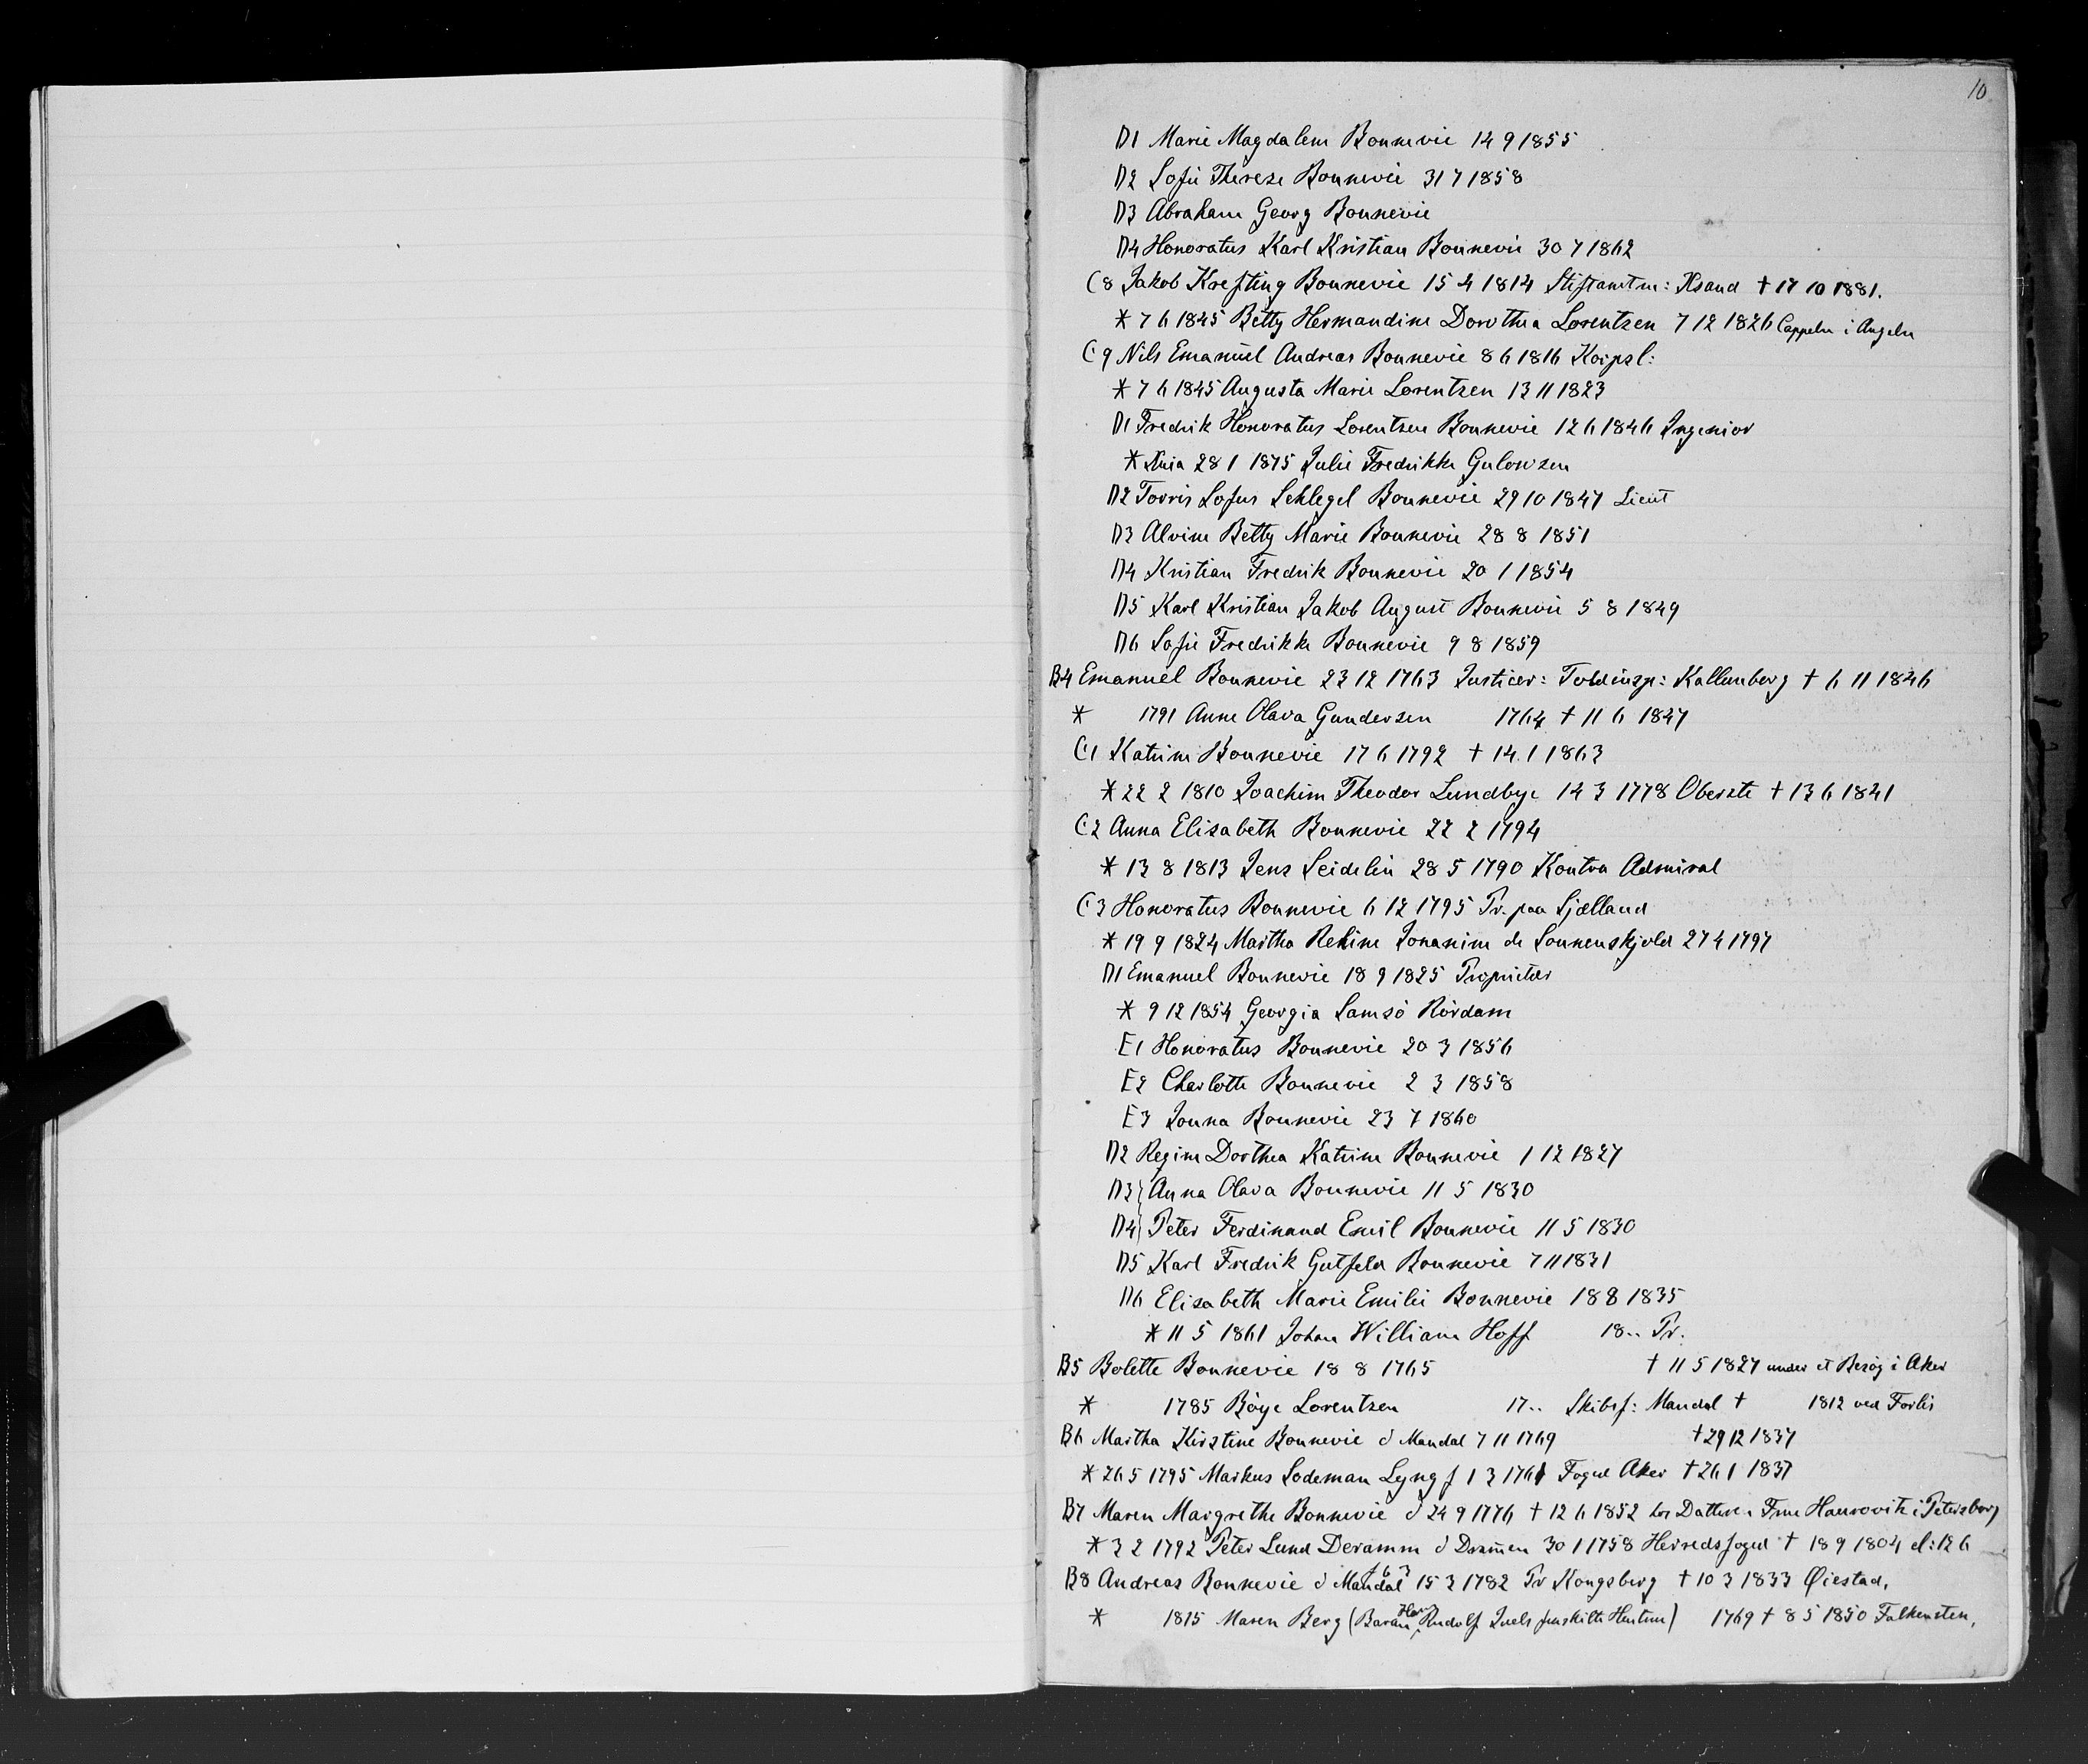 10
D1 Marie Magdalene Bonnevie 14 9 1855
D2 Sofie Therese Bonnevie 31 7 1858
D3 Abraham Georg Bonnevie
D4 Honoratus Karl Kristian Bonnevie 30 7 1862
C8 Jakob Krefting Bonnevie 15 4 1814 Stiftamtm: Ksand † 17 10 1881.
* 7 6 1845 Betty Hermandine Dorothea Lorentzen 7 12 1826 Cappeln i Angeln
C9 Nils Emanuel Andreas Bonnevie 8 6 1816 Korpsl:
* 7 6 1845 Augusta Marie Lorentzen 13 11 1823
D1 Fredrik Honoratus Lorentzen Bonnevie 12 6 1846 Ingeniør
* Kria 28 1 1875 Julie Fredrikke Gulowsen
D2 Torris Sofus Schlegel Bonnevie 29 10 1847 Lieut
D3 Alvine Betty Marie Bonnevie 28 8 1851
D4 Kristian Fredrik Bonnevie 20 1 1854
D5 Karl Kristian Jakob August Bonnevie 5 8 1849
D6 Sofie Fredrikke Bonnevie 9 8 1859
B4 Emanuel Bonnevie 23 12 1763 Justicer: Toldinsp: Kallunborg † 6 11 1846
* 1791 Anne Olava Gundersen 1764 † 11 6 1847
C1 Katrine Bonnevie 17 6 1792 † 14 1 1863
* 22 2 1810 Joachim Theodor Lundbye 14 3 1778 Oberste † 13 6 1841
C2 Anna Elisabeth Bonnevie 22 2 1794
* 13 8 1813 Jens Seidelin 28 5 1790 Kontra Admiral
C3 Honoratus Bonnevie 6 12 1795 Pr. paa Sjælland
* 19 9 1824 Martha Regine Jonanine de Sonnenskjold 27 4 1797
D1 Emanuel Bonnevie 18 9 1825 Proprietær
* 9 12 1854 Georgia Samsö Rördam
E1 Honoratus Bonnevie 20 3 1856
E2 Charlotte Bonnevie 2 3 1858
E3 Jonna Bonnevie 23 7 1860
D2 Regine Dorthea Katrine Bonnevie 1 12 1827
D3} Anna Olava Bonnevie 11 5 1830
D4} Peter Ferdinand Emil Bonnevie 11 5 1830
D5 Karl Fredrik Gutfeld Bonnevie 7 11 1831
D6 Elisabeth Marie Emilie Bonnevie 18 8 1835
* 11 5 1861 Johan William Hoff 18.. Pr.
B5 Bolette Bonnevie 18 8 1765 † 11 5 1827 under et Besög i Aker
* 1785 Böye Lorentzen 17.. Skibsf: Mandal † 1812 ved Forlis
B6 Martha Kirstine Bonnevie d Mandal 7 11 1769 † 29 12 1837
* 26 5 1795 Markus Sodeman Lyng f 1 3 1761 Foged Aker † 26 1 1837
B7 Maren Margrethe Bonnevie d 24 9 1776 † 12 6 1852 hos Datteren Frue Haurovitz i Petersborg
* 3 2 1792 Peter Lund Deramm d Drammen 30 1 1758 Herredsfoged † 18 9 1804 el: 12 6
B8 Andreas Bonnevie d Mandal f 6 3 15 3 1782 Pr Kongsberg † 10 3 1833 Øiestad,
* 1815 Maren Berg (Baron Hans Rudolf Juels fraskilte Hustru) 1769 † 8 5 1850 Falkensten,